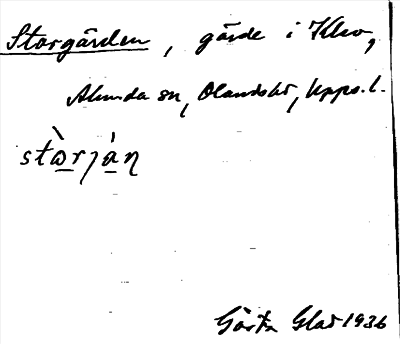 Storgärden, gärde i Klev,
Alunda sn, Olands hd, Upps. l.
stò̱rjá̱ɳ
Gösta Glad 1936